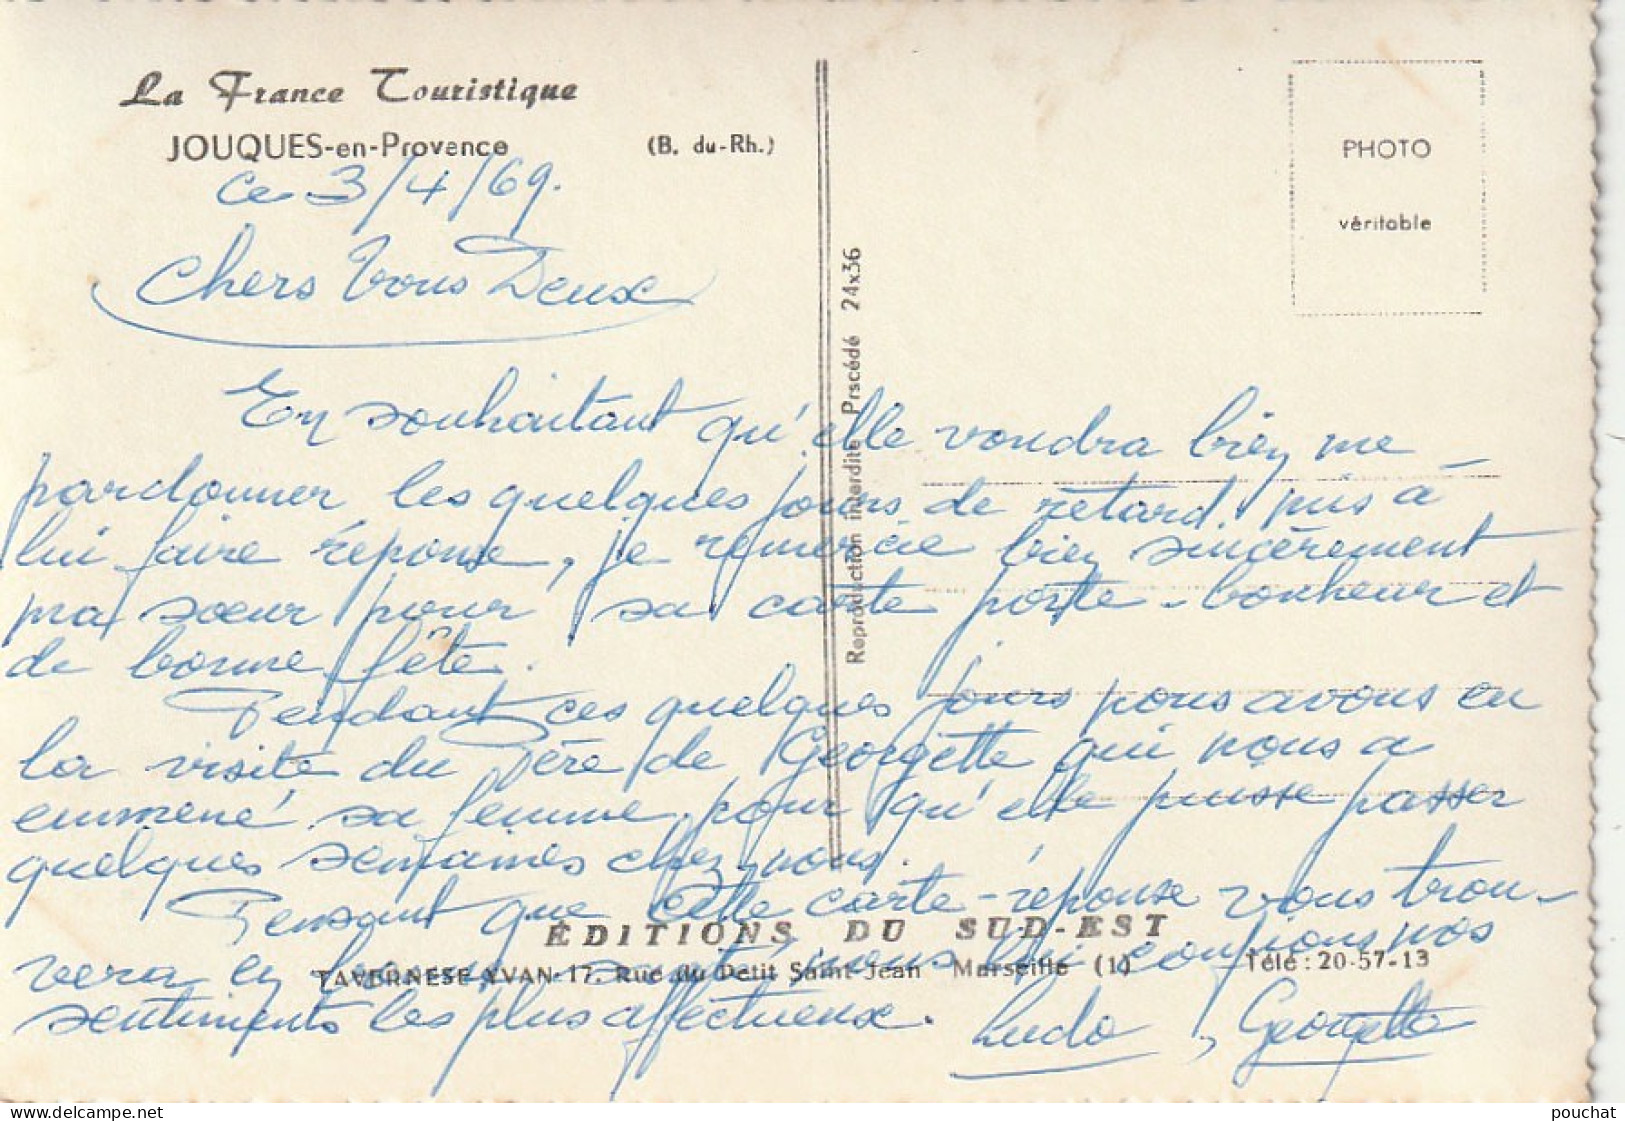 La France Touristique
JOUQUES-en-Provence (B. du-Rh.)
PHOTO
véritable
Reproduction interdite Prscédé 24x36
Ce 3/4/69.
Chers Vous Deux
En souhaitant qu'elle voudra bien me
pardonner les quelques jours de retard mis à
lui faire réponse, je remercie bien sincèrement
ma soeur pour sa carte porte-bonheur et
de bonne fête.
Pendant ces quelques jours nous avons eu
la visite du Père de Georgette qui nous a
emmené sa femme pour qu'elle puisse passer
quelques semaines chez nous.
Pensant que cette carte-réponse vous trou-
vera en bonne santé, nous lui confions nos
sentiments les plus affectueux. Ludo, Georgette
ÉDITIONS DU SUD-EST
TAVERNESE YVAN 17, Rue du Petit Saint-Jean Marseille (1) Télé : 20-57-13
pouchat